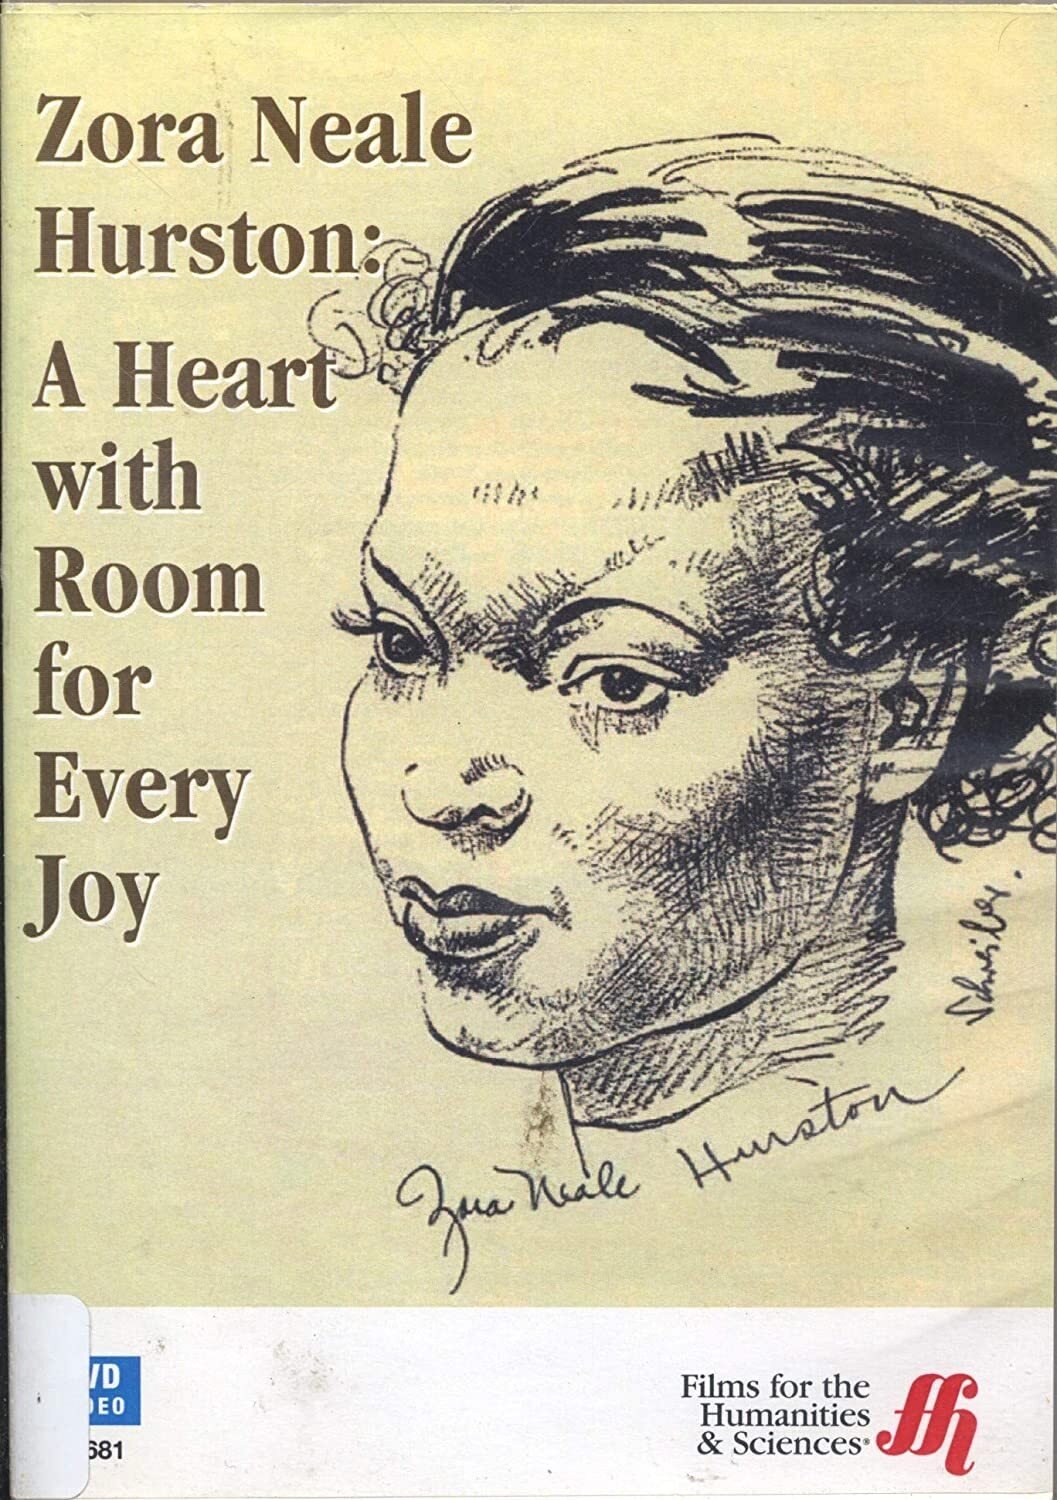 Zora Neale
Hurston:
A Heart
with
Room
for
Every
Joy
Schreiber.
Zora Neale Hurston
VD
DEO
681
Films for the
Humanities
& Sciences®